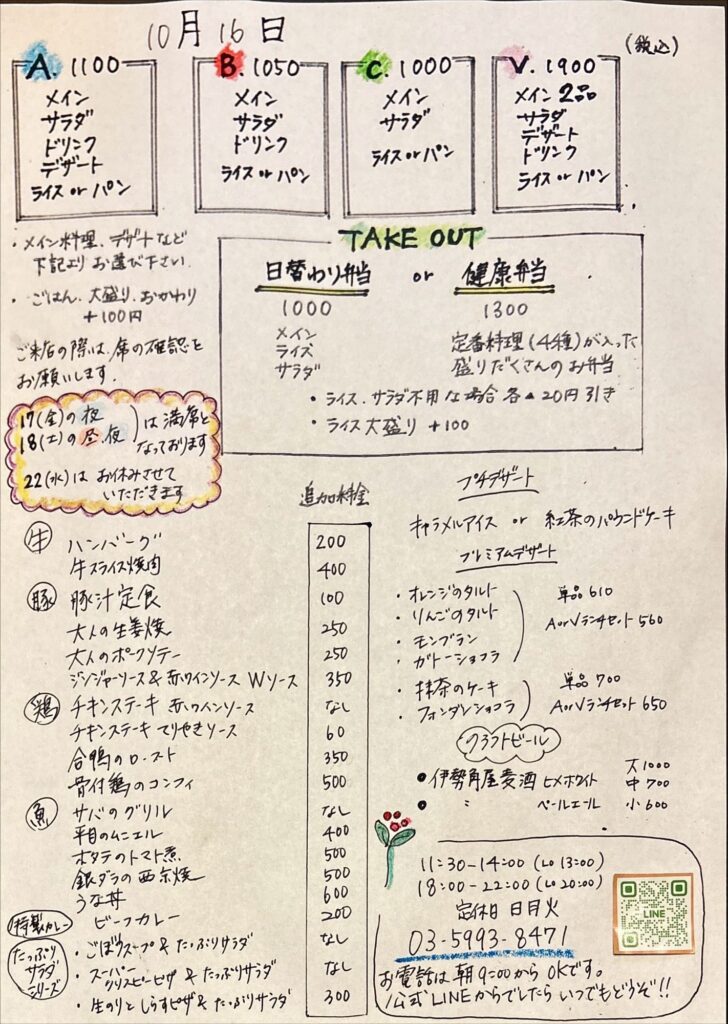 10月16日
(税込)
A. 1100
メイン
サラダ
ドリンク
デザート
ライス or パン
B. 1050
メイン
サラダ
ドリンク
ライス or パン
C. 1000
メイン
サラダ
ライス or パン
V. 1900
メイン 2品
サラダ
デザート
ドリンク
ライス or パン
・メイン料理、デザートなど
下記よりお選び下さい.
・ごはん、大盛り、おかわり
+100円
ご来店の際は、席の確認を
お願いします.
17(金)の夜
18(土)の昼、夜
は満席と
なっております
22(水)は お休みさせて
いただきます
TAKE OUT
日替わり弁当 or 健康弁当
1000
メイン
ライス
サラダ
1300
定番料理(4種)が入った
盛りだくさんのお弁当
・ライス、サラダ不用な場合 各▲20円引き
・ライス大盛り +100
追加料金
牛 ハンバーグ 200
牛スライス焼肉 400
豚 豚汁定食 100
大人の生姜焼 250
大人のポークソテー 250
ジンジャーソース&赤ワインソース Wソース 350
鶏 チキンステーキ 赤ワインソース なし
チキンステーキ てりやきソース 60
合鴨のロースト 350
骨付鶏のコンフィ 500
魚 サバのグリル なし
平目のムニエル 400
ホタテのトマト煮 500
銀ダラの西京焼 500
うな丼 600
特製カレー ビーフカレー 200
たっぷり
サラダ
シリーズ
・ごぼうスープ & たっぷりサラダ なし
・スーパー
クリスピーピザ & たっぷりサラダ なし
・生のりとしらすピザ & たっぷりサラダ 300
プチデザート
キャラメルアイス or 紅茶のパウンドケーキ
プレミアムデザート
・オレンジのタルト
・りんごのタルト
・モンブラン
・ガトーショコラ
単品 610
AorVランチセット 560
・抹茶のケーキ
・フォンダンショコラ
単品 700
AorVランチセット 650
クラフトビール
●伊勢角屋麦酒 ヒメホワイト
● 〃 ペールエール
大 1000
中 700
小 600
11:30-14:00 (Lo 13:00)
18:00-22:00 (Lo 20:00)
定休日 日月火
03-5993-8471
お電話は朝9:00からOKです。
公式LINEからでしたらいつでもどうぞ!!
LINE